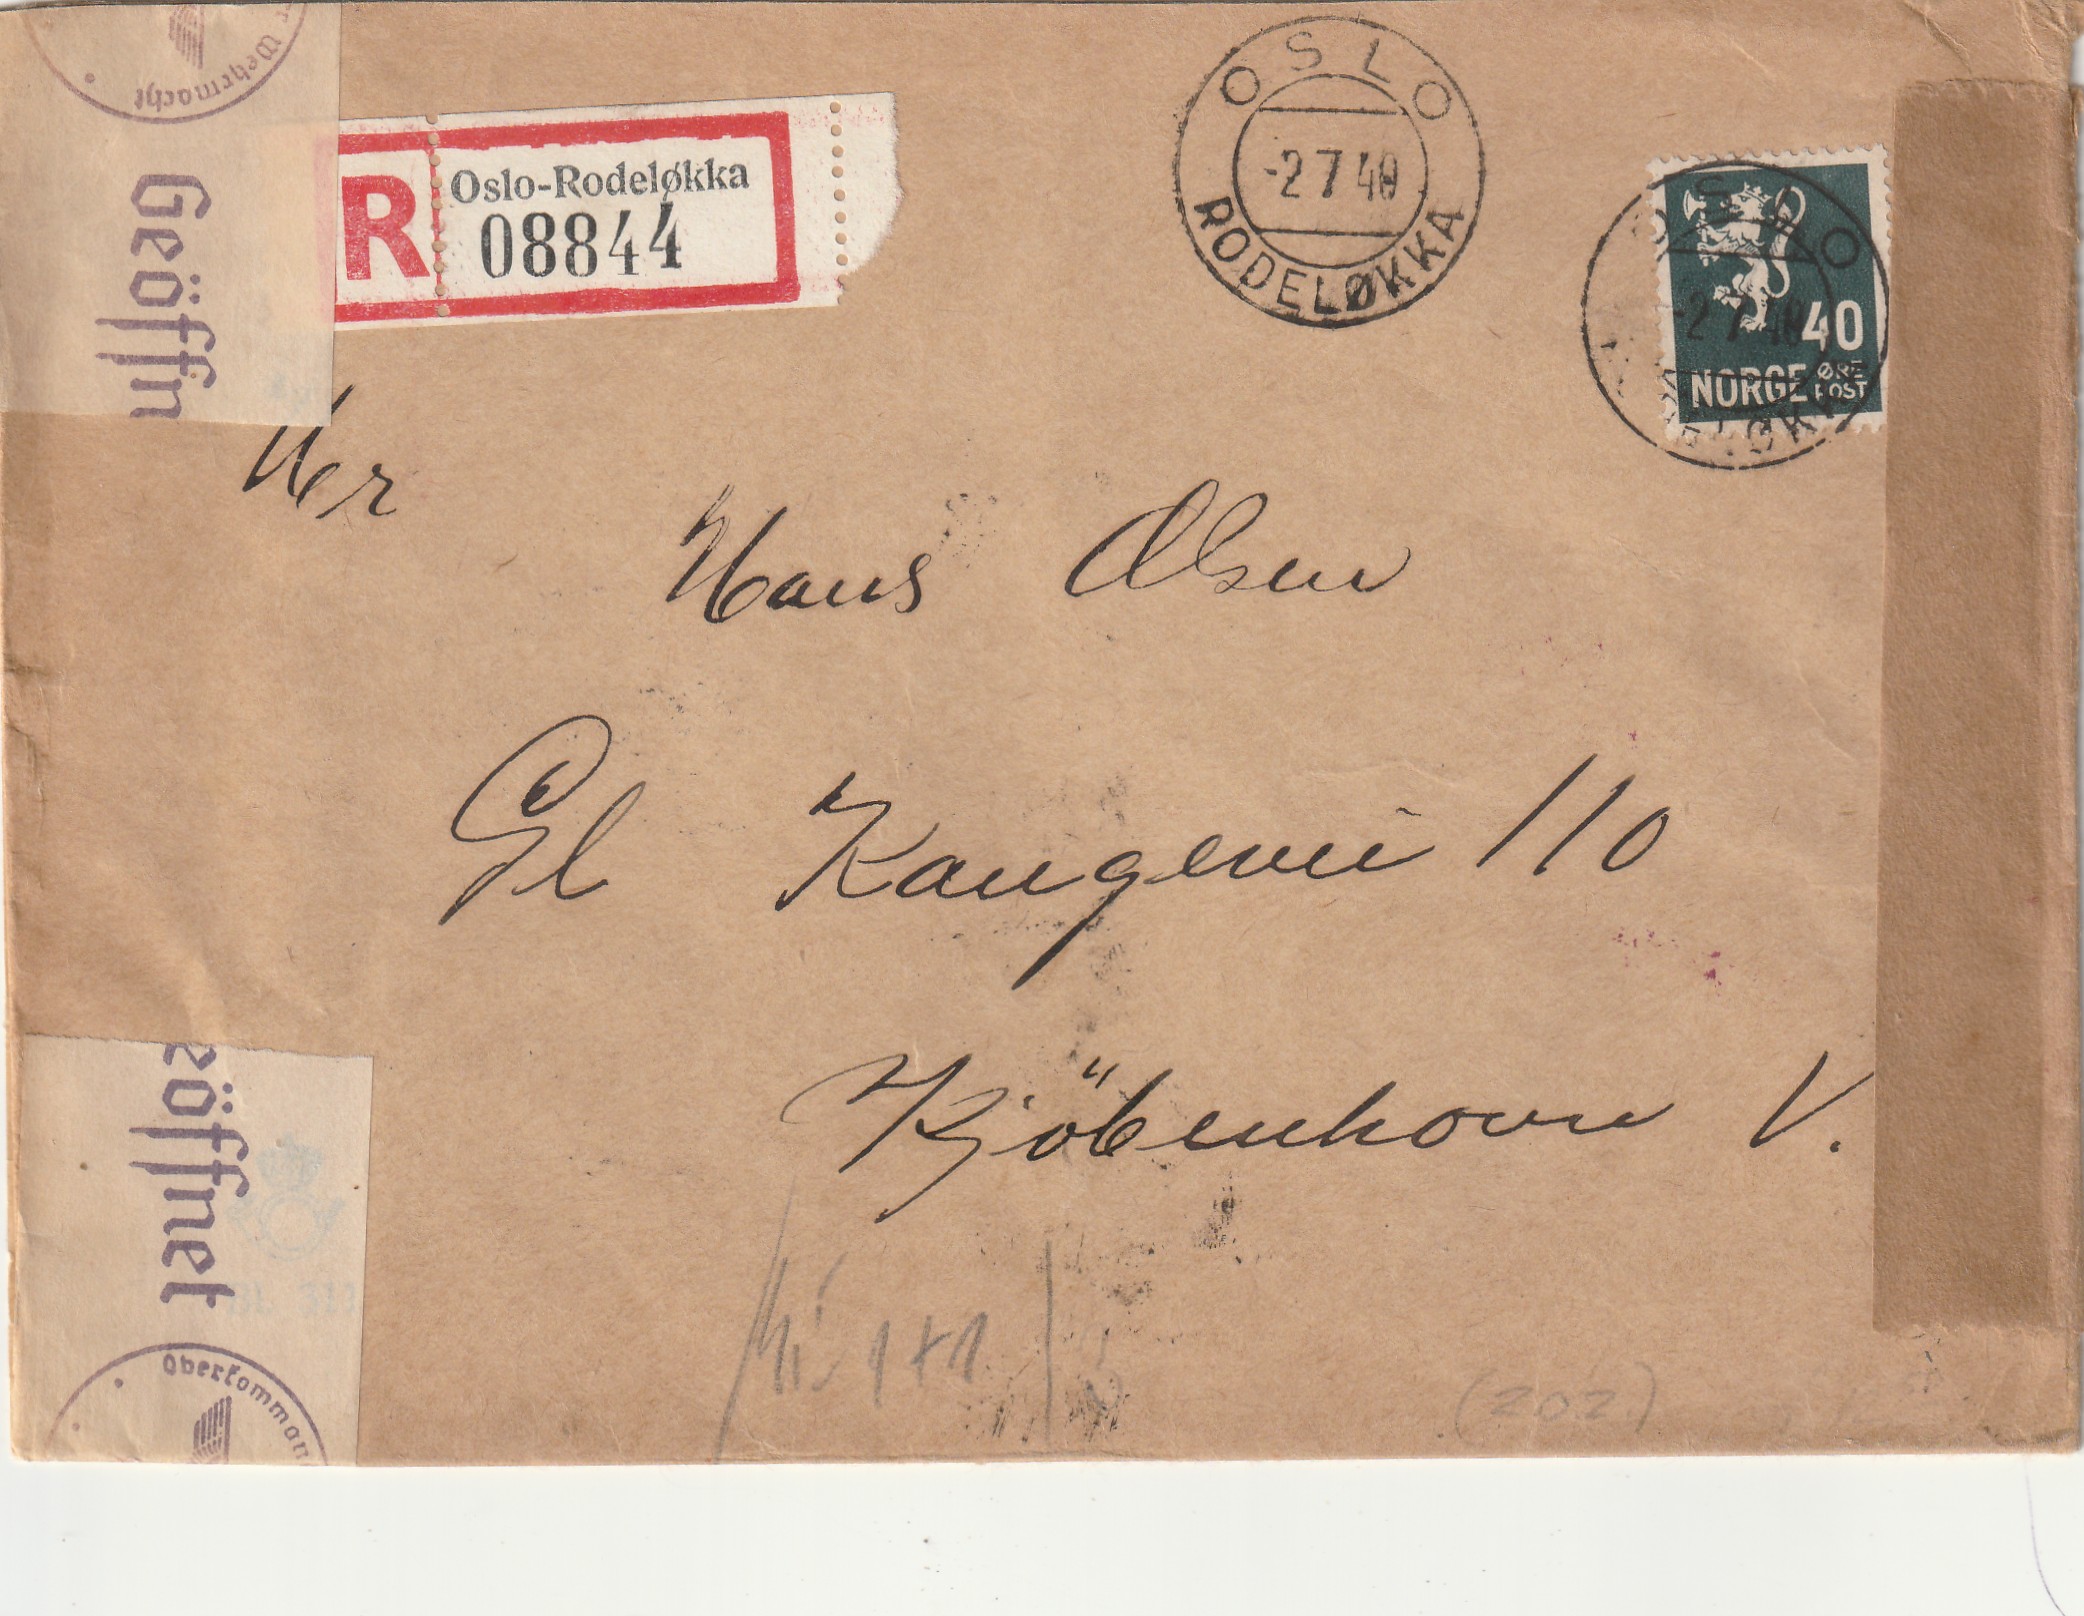 Wehrmacht
Geöffn
R
Oslo-Rodeløkka
08844
OSLO
-2 7 40
RODELØKKA
OSLO
-2 7 40
40
NORGE ØRE
POST
Hr
Hans Olsen
Gl Kongevei 110
Kjöbenhavn V.
eöffnet
Oberkomman
(202)